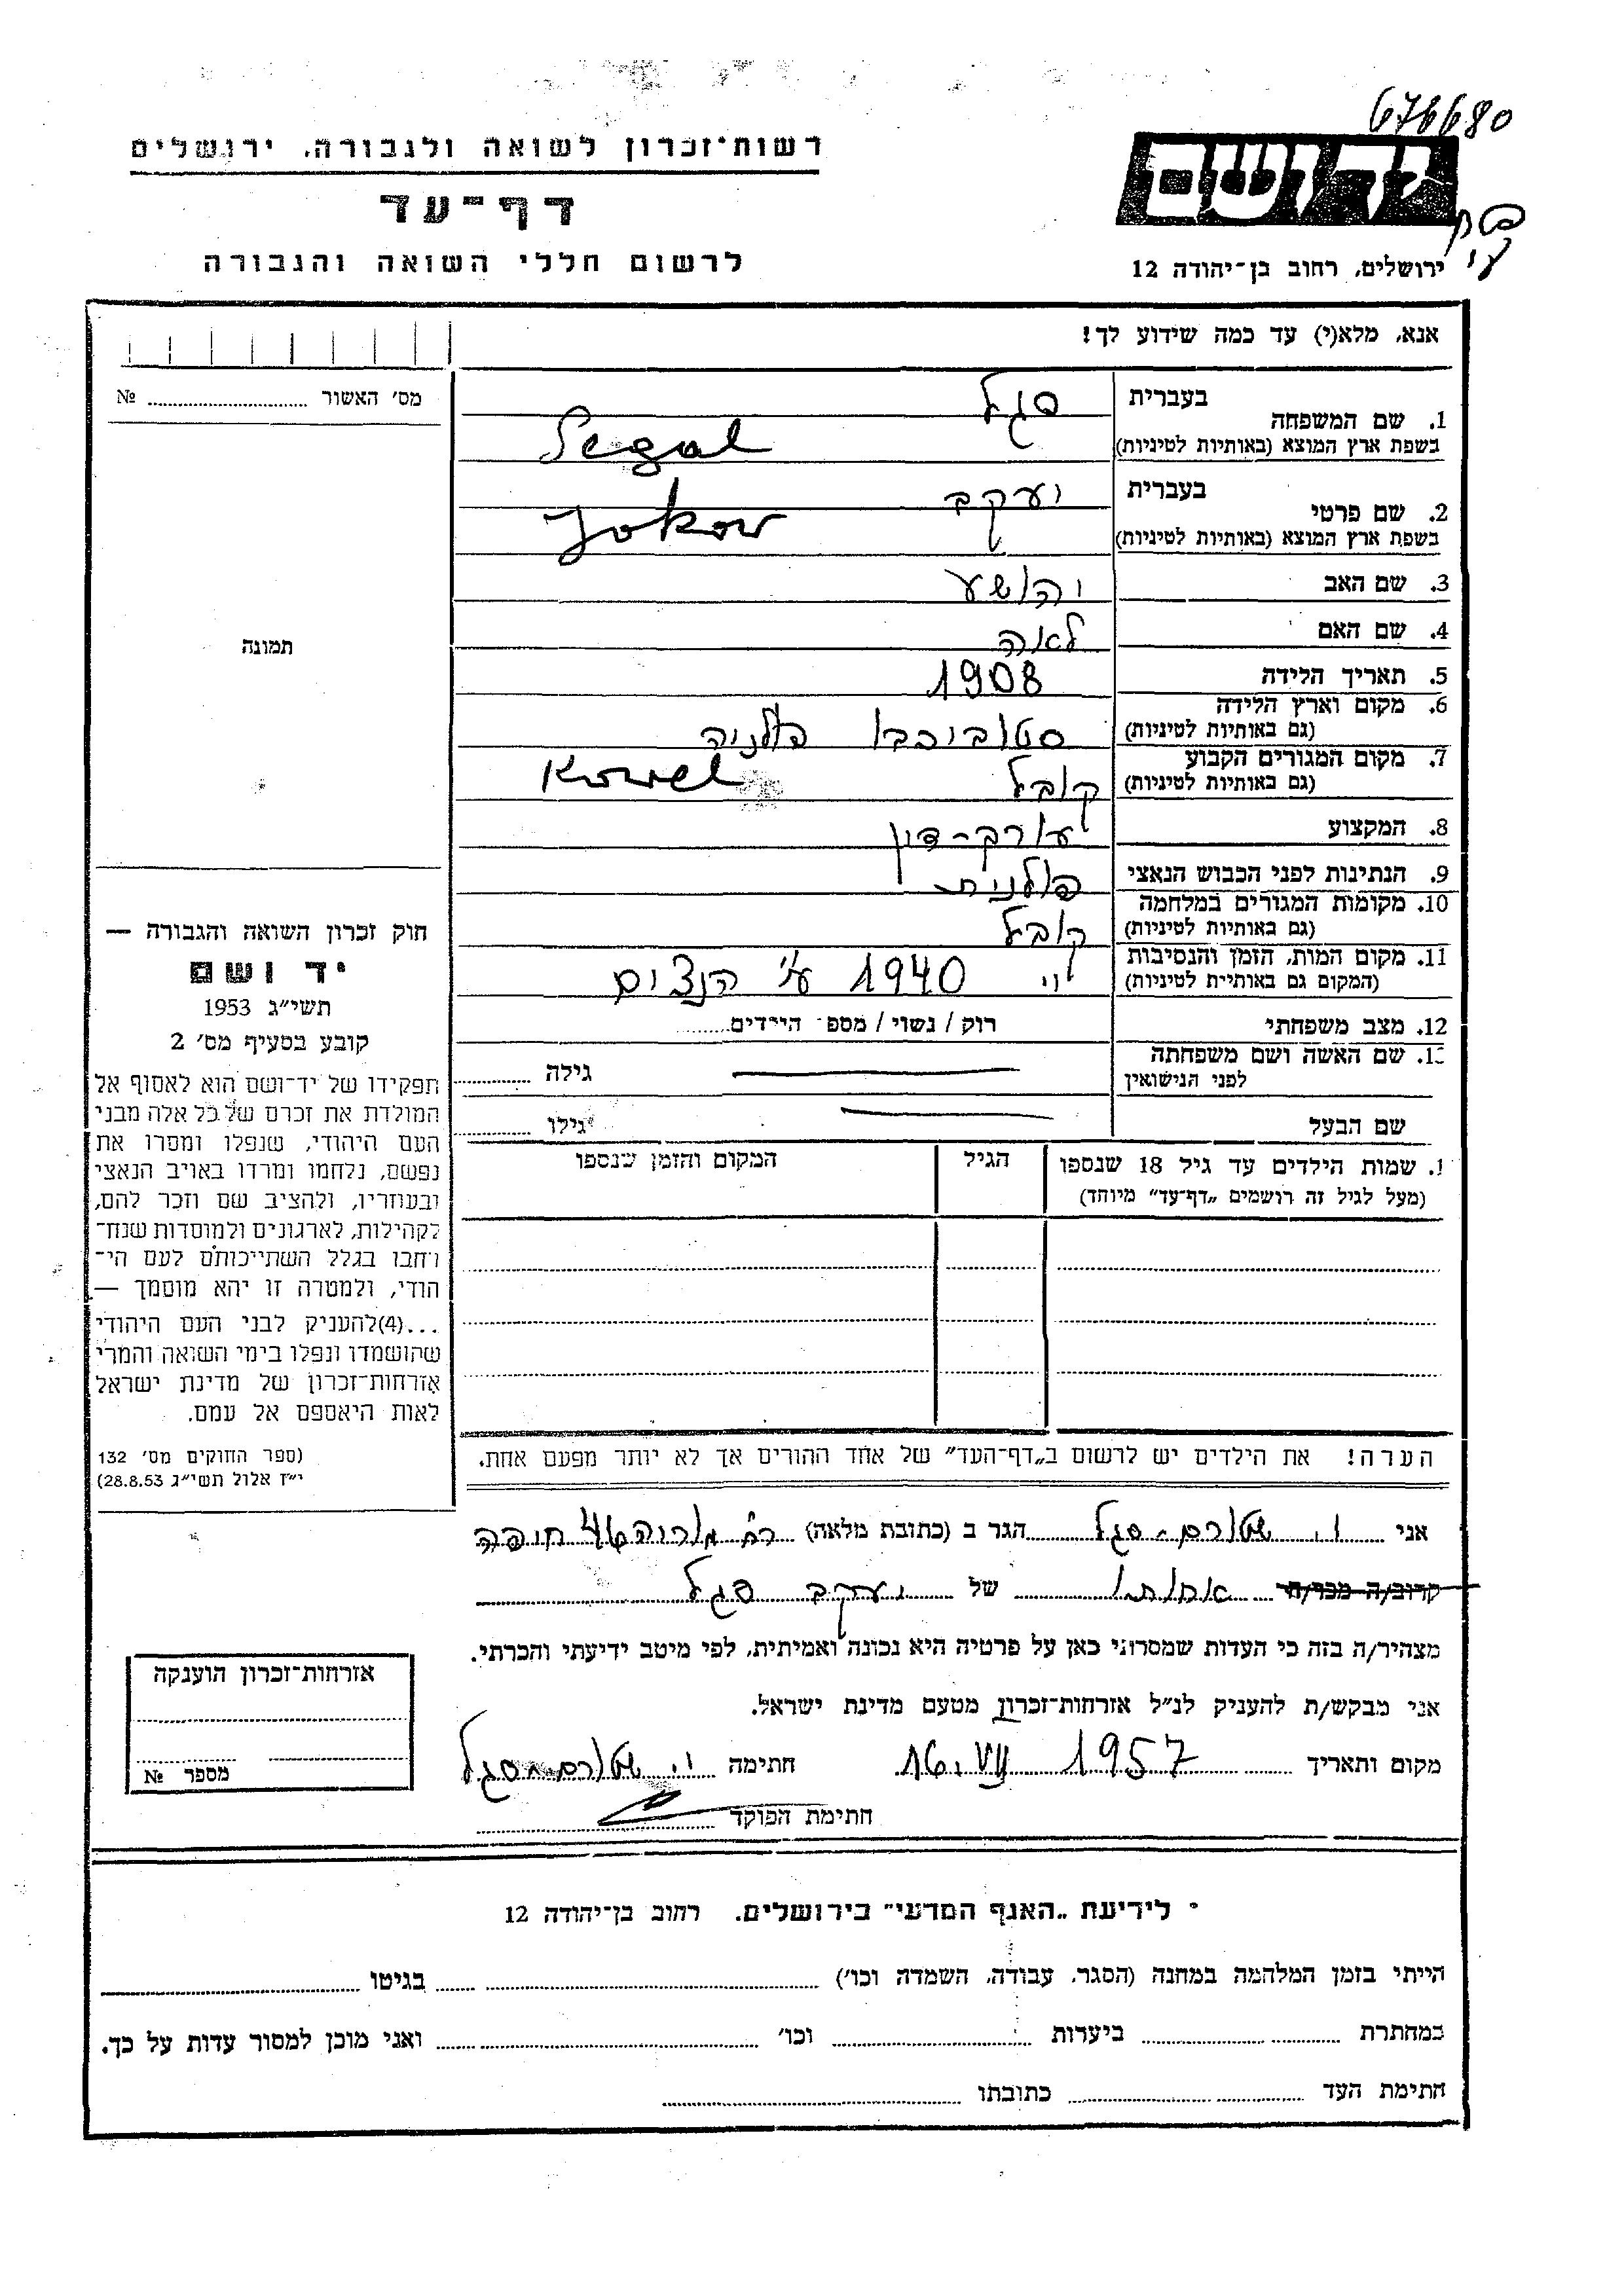 676680
רשות־זכרון לשואה ולגבורה, ירושלים
יד ושם
דף־עד
לרשום חללי השואה והגבורה
ירושלים, רחוב בן־יהודה 12
אנא, מלא(י) עד כמה שידוע לך!
מס׳ האשור № 
1. שם המשפחה בעברית סגל
בשפת ארץ המוצא (באותיות לטיניות) Segal
2. שם פרטי בעברית יעקב
בשפת ארץ המוצא (באותיות לטיניות) Jokov
3. שם האב יהושע
4. שם האם לאה
5. תאריך הלידה 1908
6. מקום וארץ הלידה
(גם באותיות לטיניות) פולניה
7. מקום המגורים הקבוע
(גם באותיות לטיניות) קובל Kowel
8. המקצוע עורך-דין
9. הנתינות לפני הכבוש הנאצי פולנית
10. מקומות המגורים במלחמה
(גם באותיות לטיניות) קובל
11. מקום המות, הזמן והנסיבות
(המקום גם באותיית לטיניות) 1940 ע״י הנצים
12. מצב משפחתי רוק / נשוי / מספ׳ הילדים
13. שם האשה ושם משפחתה
לפני הנישואין גילה
שם הבעל גילו
שמות הילדים עד גיל 18 שנספו הגיל המקום והזמן שנספו
(מעל לגיל זה רושמים „דף־עד״ מיוחד)
הערה! את הילדים יש לרשום ב„דף־העד״ של אחד ההורים אך לא יותר מפעם אחת.
תמונה
חוק זכרון השואה והגבורה —
יד ושם
תשי״ג 1953
קובע בסעיף מס׳ 2
תפקידו של יד־ושם הוא לאסוף אל
המולדת את זכרם של כל אלה מבני
העם היהודי, שנפלו ומסרו את
נפשם, נלחמו ומרדו באויב הנאצי
ובעוזריו, ולהציב שם וזכר להם,
לקהילות, לארגונים ולמוסדות שנח־
רחבו בגלל השתייכותם לעם הי־
הודי, ולמטרה זו יהא מוסמך —
...(4)להעניק לבני העם היהודי
שהושמדו ונפלו בימי השואה והמרי
אזרחות־זכרון של מדינת ישראל
לאות היאספם אל עמם.
(ספר החוקים מס׳ 132
י״ז אלול תשי״ג 28.8.53)
אני י. שטורם-סגל הגר ב (כתובת מלאה) 46 חיפה
קרוב/ה מכר/ה אחותו של יעקב סגל
מצהיר/ה בזה כי העדות שמסרתי כאן על פרטיה היא נכונה ואמיתית, לפי מיטב ידיעתי והכרתי.
אני מבקש/ת להעניק לנ״ל אזרחות־זכרון מטעם מדינת ישראל.
מקום ותאריך 16.VII 1957 חתימה י. שטורם-סגל
חתימת הפוקד
אזרחות־זכרון הוענקה
מספר №
לידיעת „האגף המדעי״ בירושלים. רחוב בן־יהודה 12
הייתי בזמן המלהמה במחנה (הסגר, עבודה, השמדה וכו׳) בגיטו
במחתרת ביערות וכו׳ ואני מוכן למסור עדות על כך.
חתימת העד כתובתו